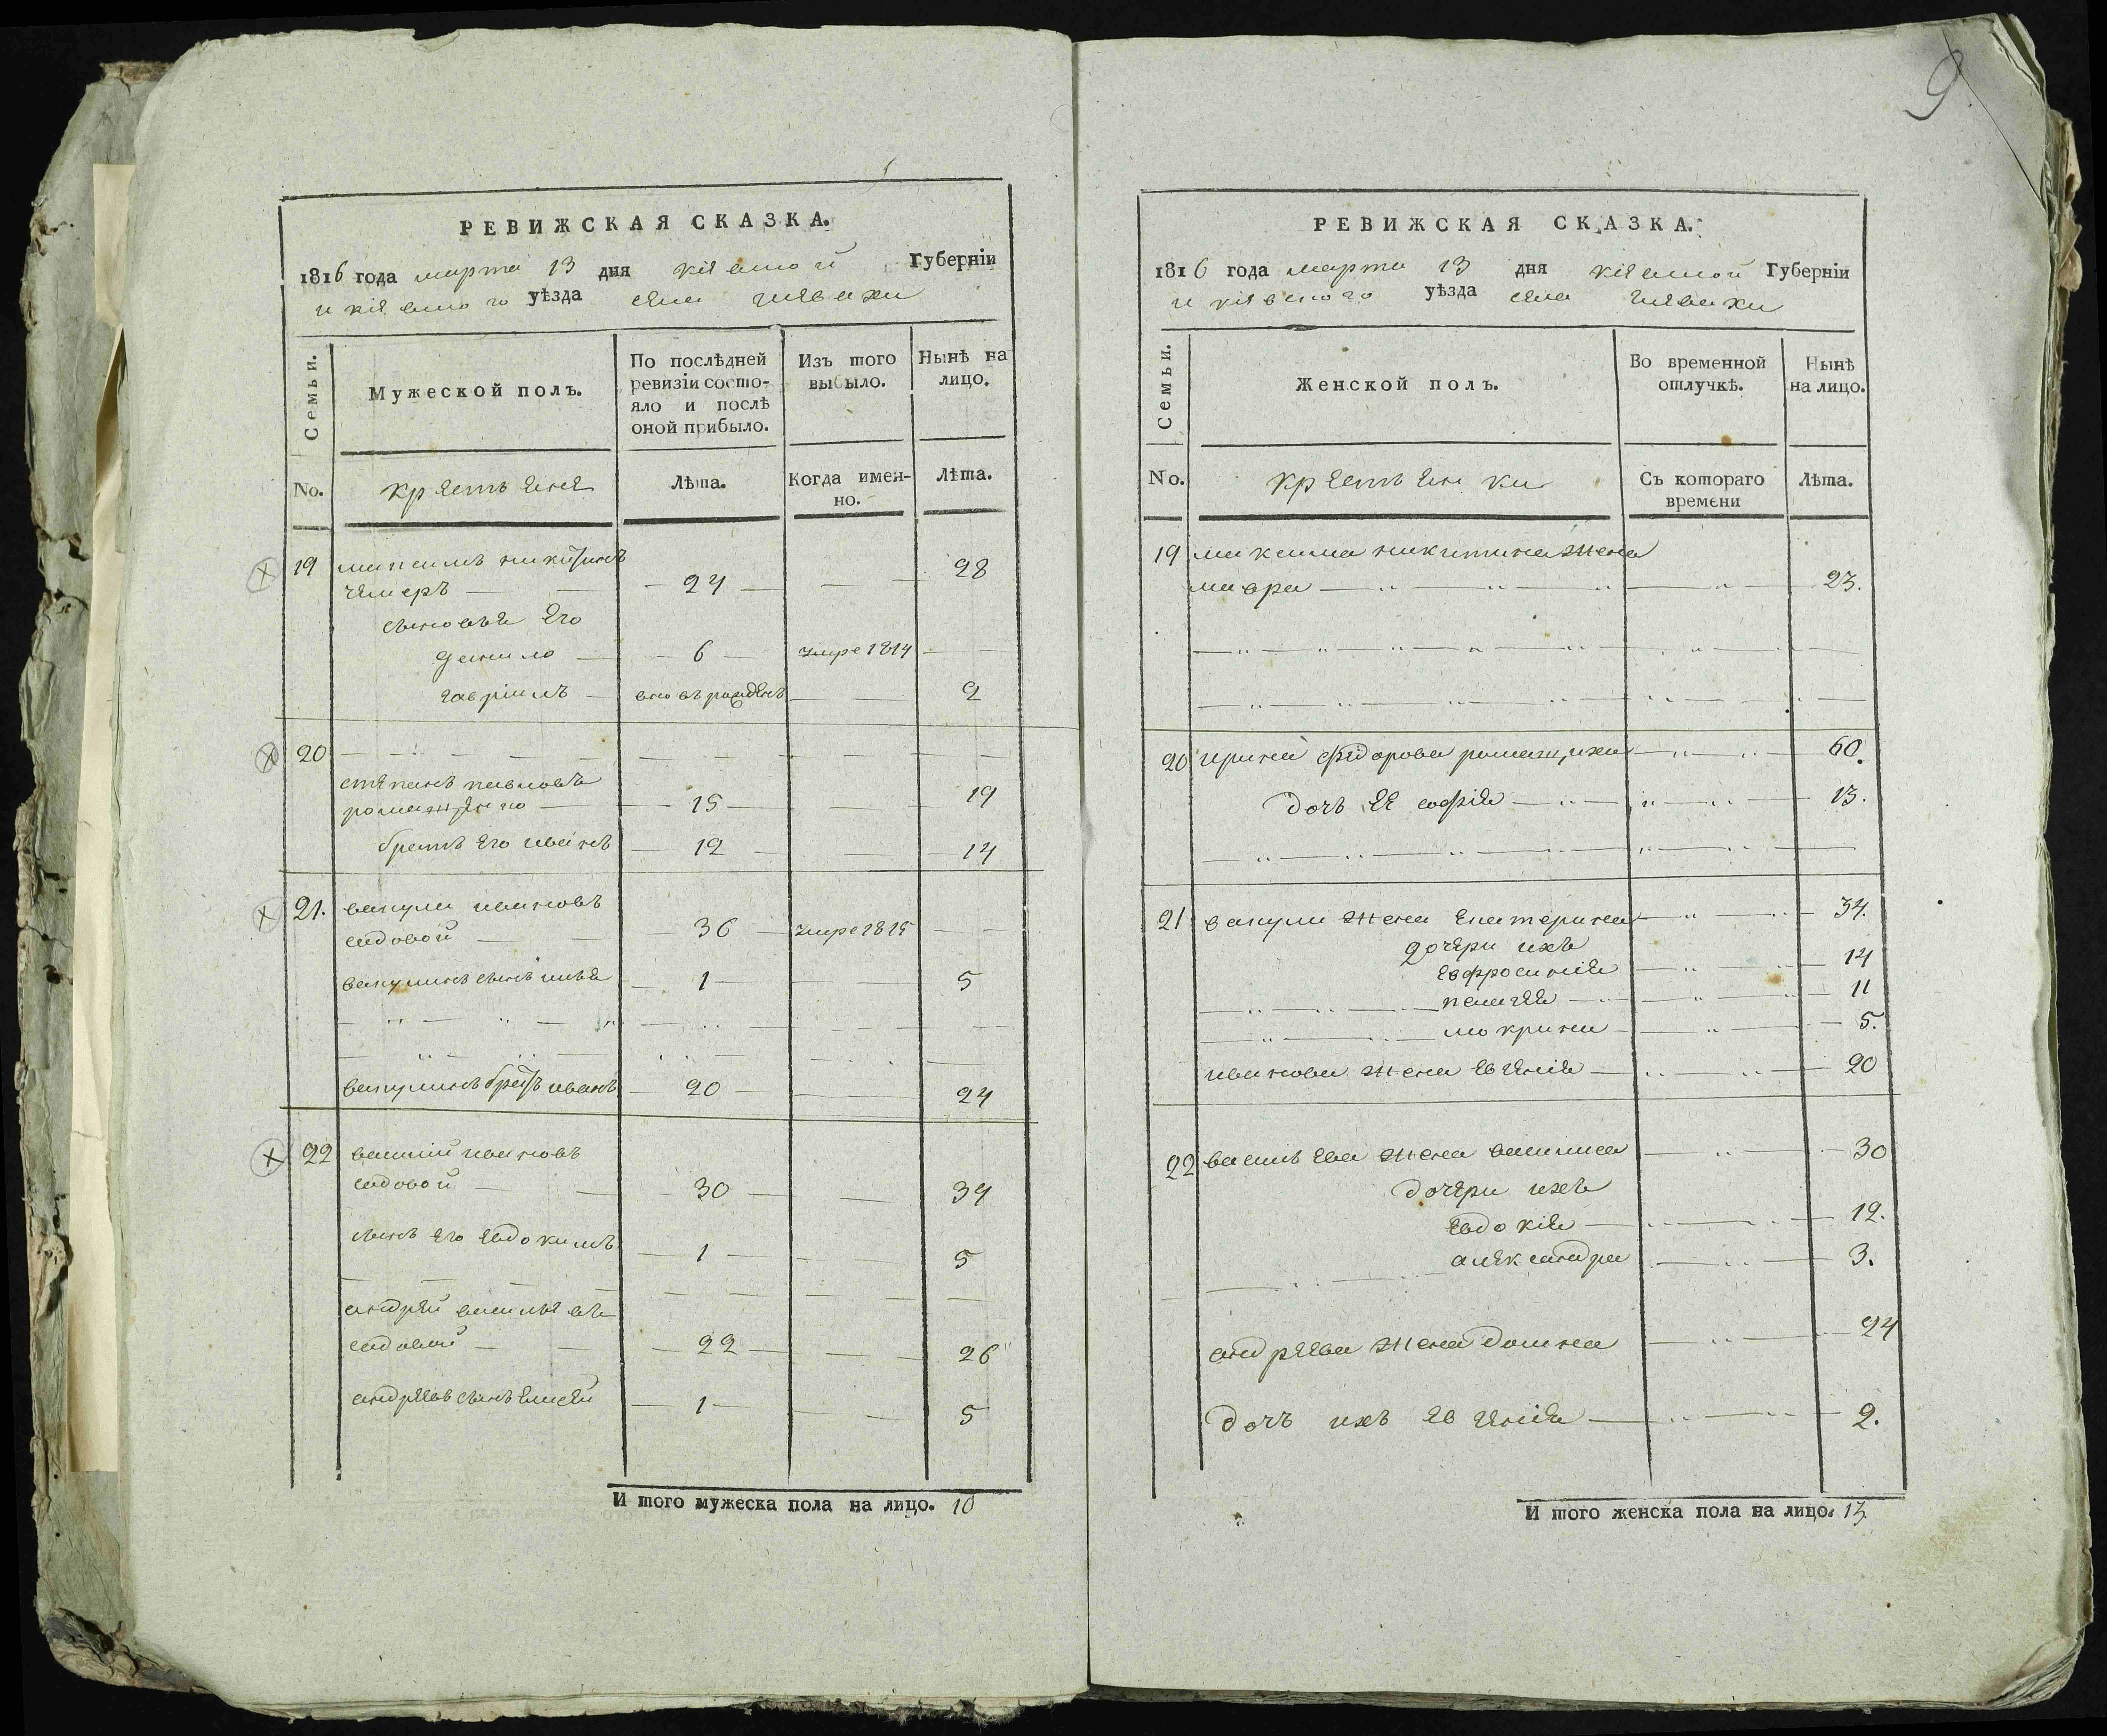 9
РЕВИЖСКАЯ СКАЗКА.
1816 года марта 13 дня кіевской Губерніи
и кіевского уѣзда села гневахи
Семьи.
Мужеской полъ.
По послѣдней ревизіи состо-
яло и послѣ
оной прибыло.
Изъ того
выбыло.
Нынѣ на
лицо.
No.
крестьяне
Лѣта.
Когда имен-
но.
Лѣта.
19 максимъ никитинъ
24 28
сыновья его
данило 6 умре 1814
гавріилъ вновь рожденъ 2
20
степанъ павловъ
романенко 15 19
братъ его иванъ 12 14
21. вакула ивановъ
садовой 36 умре 1815
вакулинъ сынъ илья 1 5
вакулинъ братъ иванъ 20 24
22 василій ивановъ
садовой 30 34
сынъ его евдокимъ 1 5
андрей васильевъ
садовой 22 26
андреевъ сынъ елисей 1 5
И того мужеска пола на лицо. 10
РЕВИЖСКАЯ СКАЗКА.
1816 года марта 13 дня кіевской Губерніи
и кіевского уѣзда села гневахи
Семьи.
Женской полъ.
Во временной
отлучкѣ.
Нынѣ
на лицо.
No.
крестьянки
Съ котораго
времени
Лѣта.
19 максима никитина жена
мавра 23.
20 ирина федорова 60.
дочь ее софія 13.
21 вакули жена екатерина 34.
дочери ихъ
евфросинія 14
пелагея 11
мокрина 5.
иванова жена евгенія 20
22 васильева жена василиса 30
дочери ихъ
евдокія 12.
александра 3.
андреева жена домна 24
дочь ихъ евгенія 2.
И того женска пола на лицо. 13